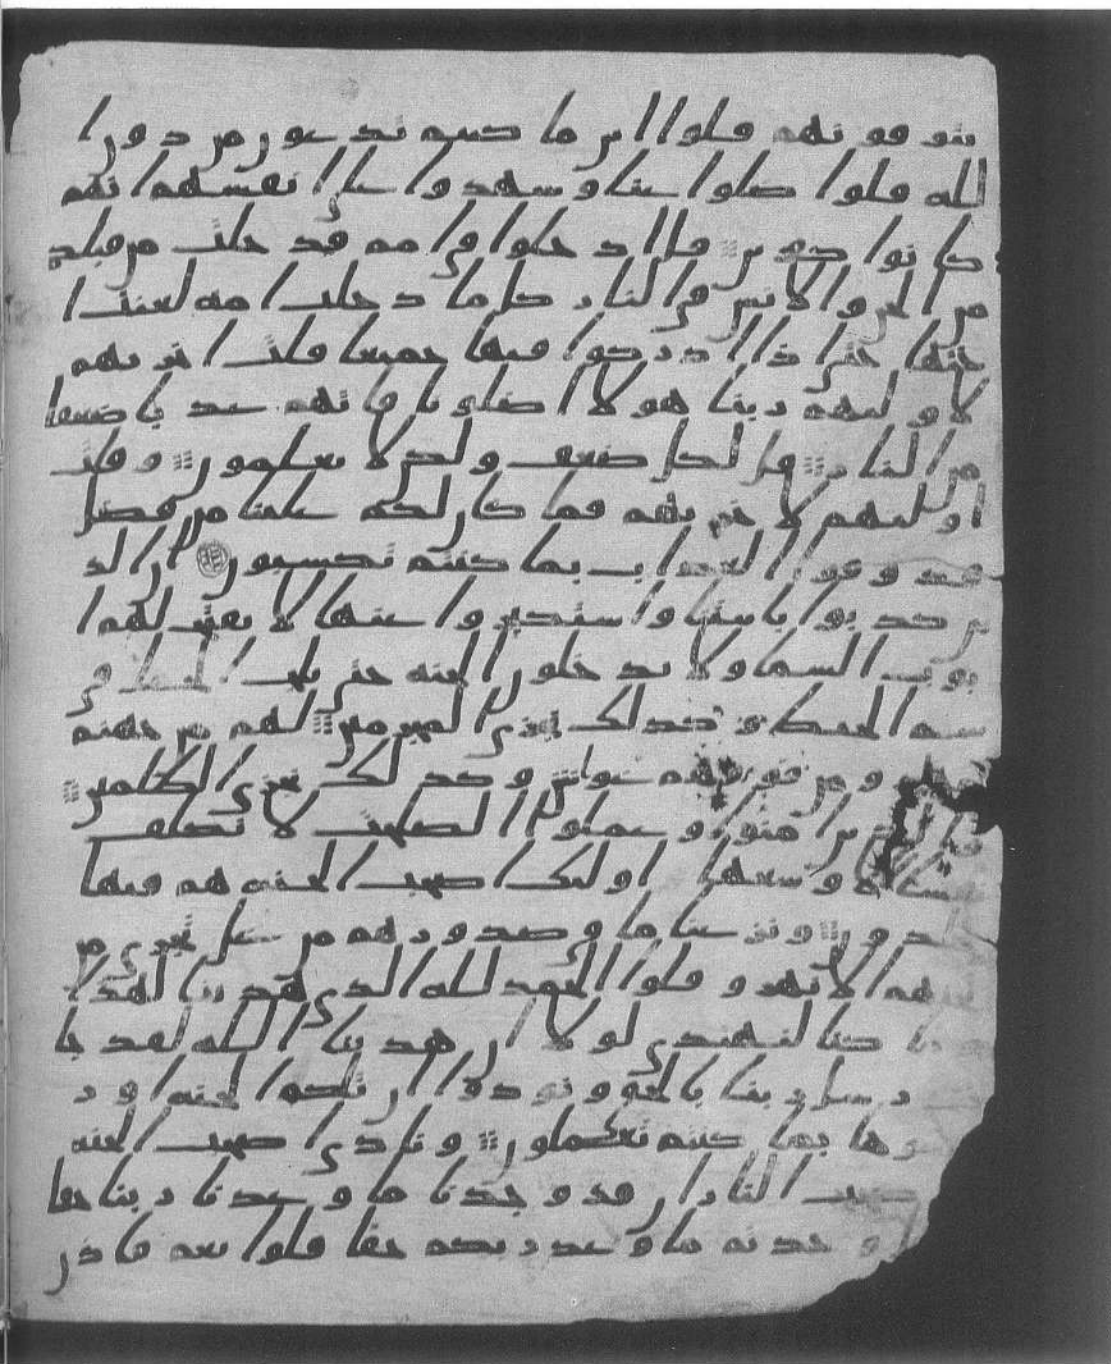 يتوفونهم قلوا اين ما كنتم تدعون من دون ا
لله قلوا ضلوا عنا وشهدوا على انفسهم انهم
كانوا كفرين قال ادخلوا في امم قد خلت من قبلكم
من الجن والانس في النار كلما دخلت امه لعنت ا
ختها حتى اذا ادركوا فيها جميعا قلت اخريهم
لاوليهم ربنا هولا اضلونا فاتهم عذبا ضعفا
من النار قل لكل ضعف ولكن لا تعلمون وقلت
اوليهم لاخريهم فما كان لكم علينا من فضل
فذوقوا العذاب بما كنتم تكسبون ان الذ
ين كذبوا بايتنا واستكبروا عنها لا تفتح لهم ا
بوب السما ولا يدخلون الجنه حتى يلج الجمل في
سم الخيط وكذلك نجزي المجرمين لهم من جهنم
ومن فوقهم غواش وكذلك نجزي الظلمين
والذين امنوا وعملوا الصلحت لا نكلف
نفسا الا وسعها اوليك اصحب الجنه هم فيها
خلدون ونزعنا ما في صدورهم من غل تجري من
تحتهم الانهر وقلوا الحمد لله الذي هدينا لهذا
كنا لنهتدي لولا ان هدينا الله لقد جا
رسل ربنا بالحق ونودوا ان تلكم الجنه اور
ثتموها بما كنتم تعملون ونادى اصحب الجنه
اصحب النار ان قد وجدنا ما وعدنا ربنا حقا
وجدتم ما وعد ربكم حقا قلوا نعم فاذن